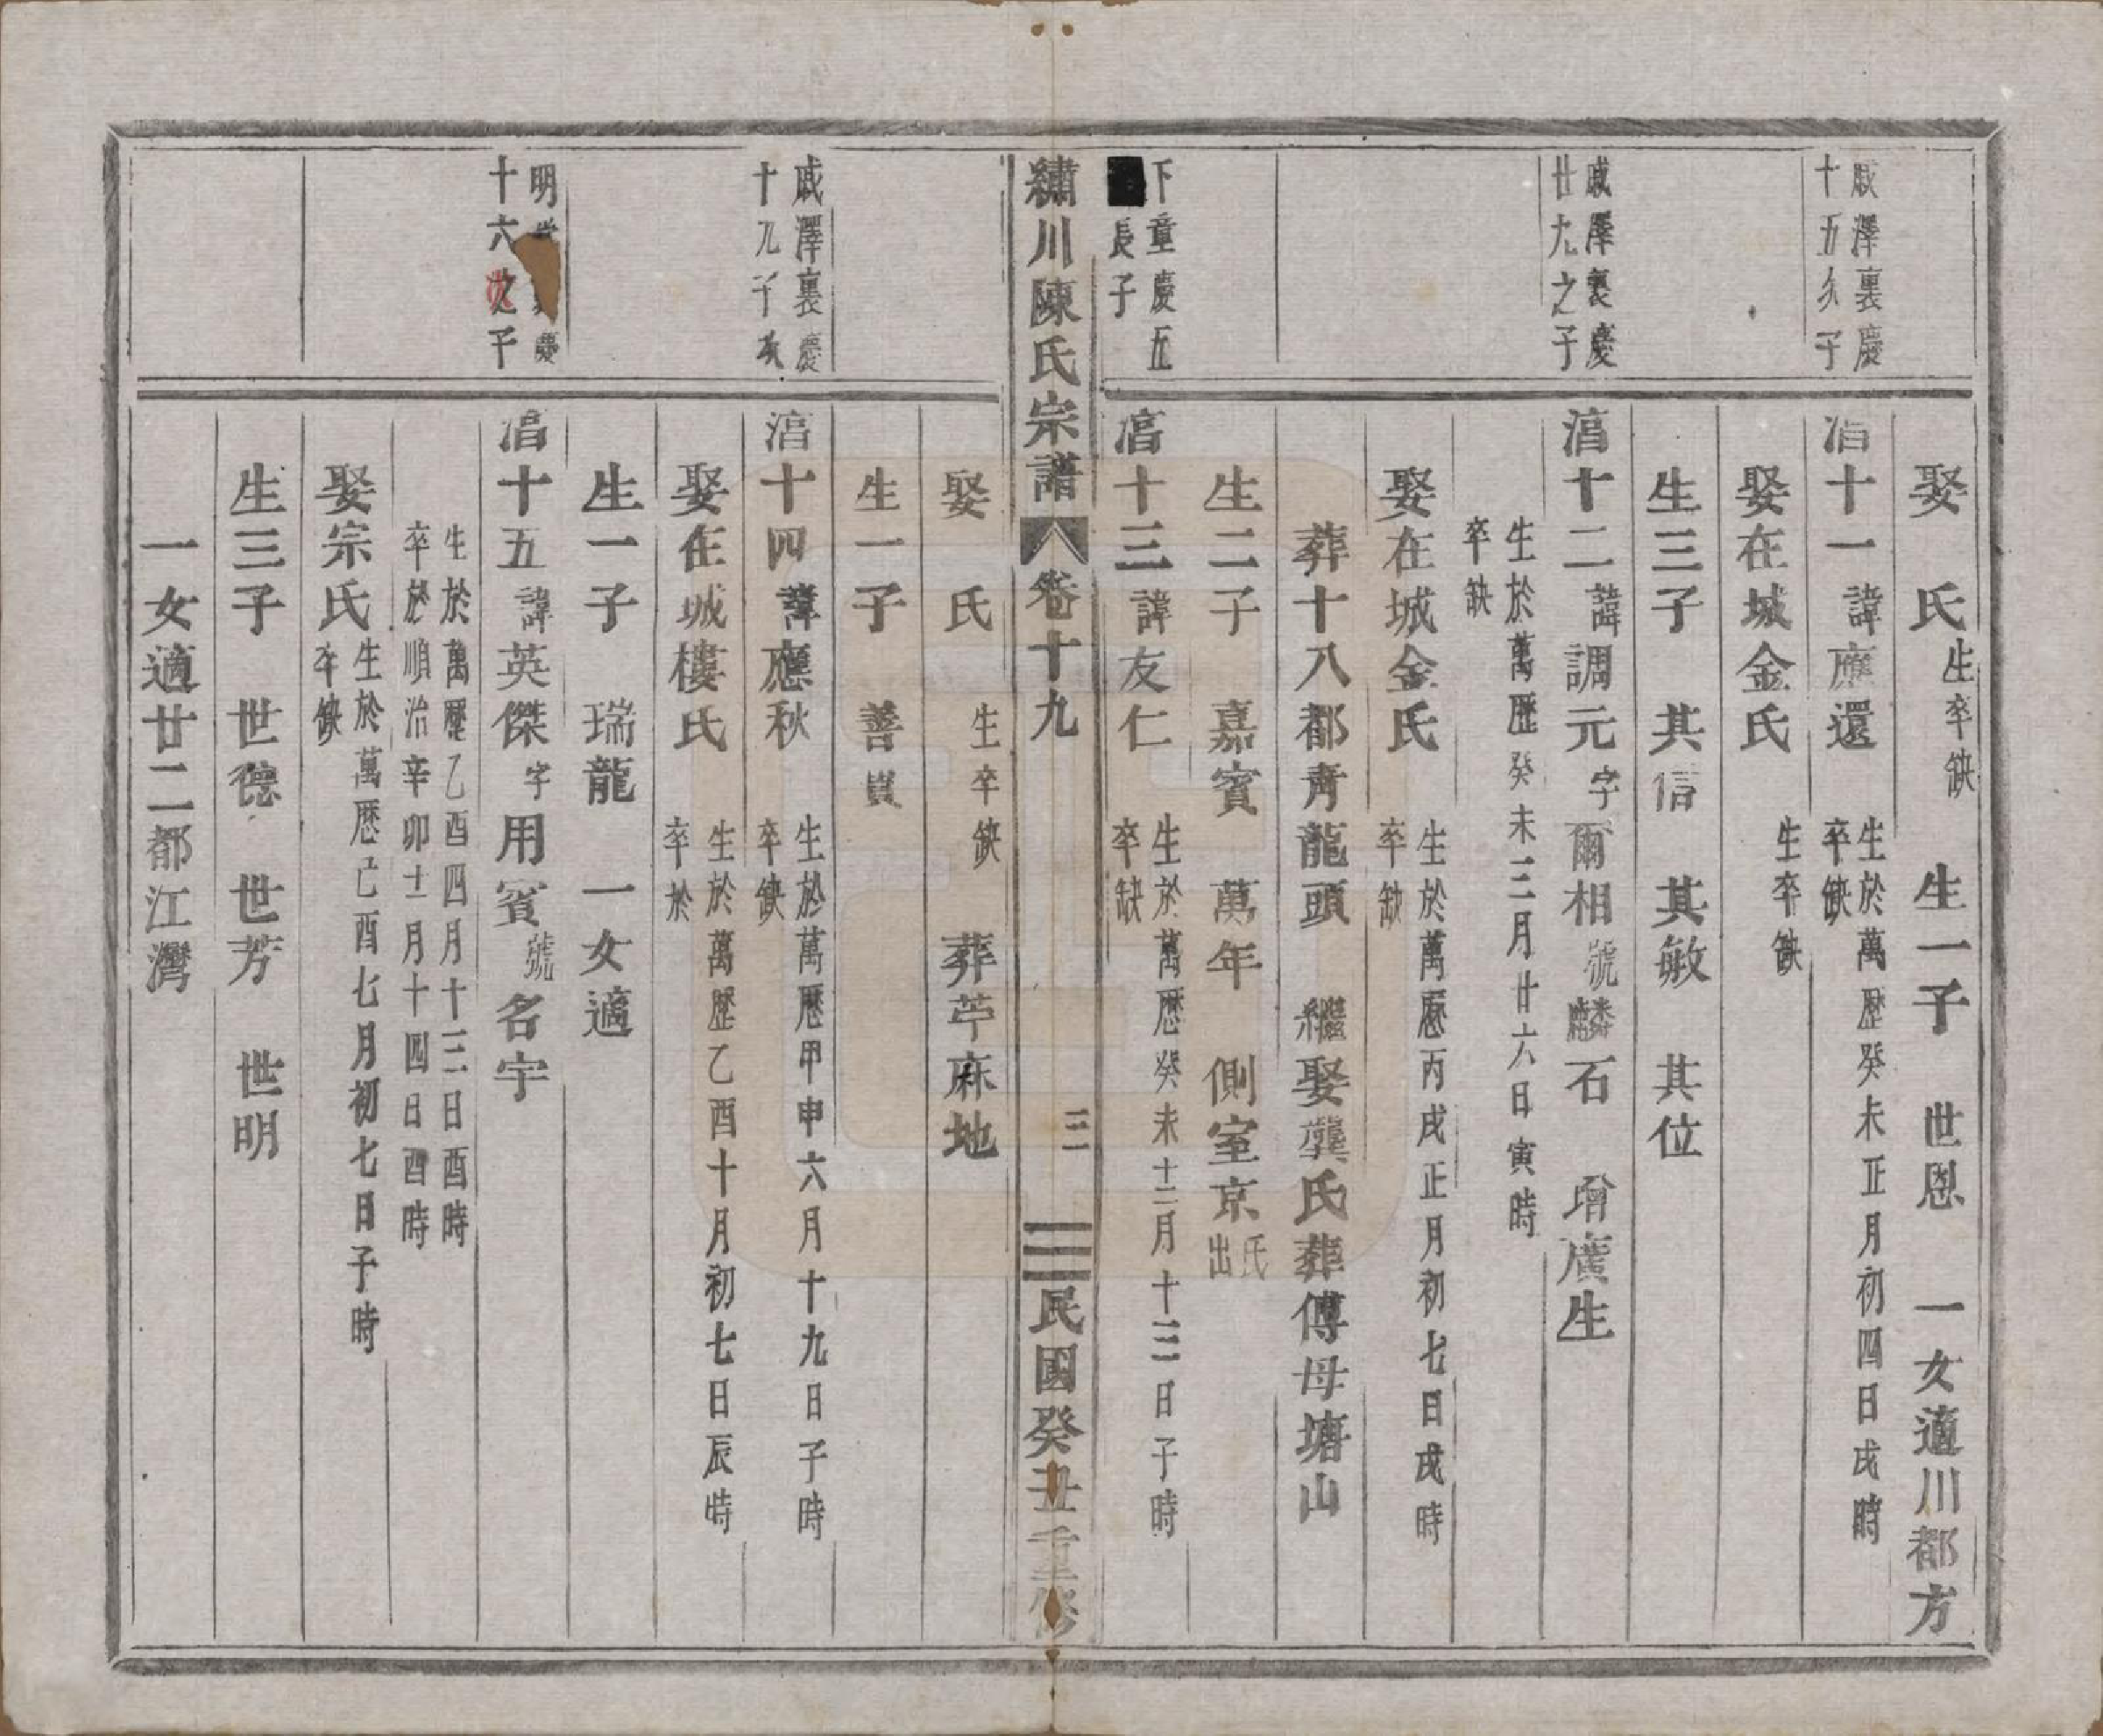 娶　氏生卒缺　生一子　世恩　一女適川都方
戚澤裏慶
十五公子
湻十一諱應還　生於萬歷癸未正月初四日戌時
卒缺
娶在城金氏　生卒缺
生三子　其信　其敏　其位
戚澤裏慶
廿九之子
湻十二諱調元字爾相號麟石　增廣生
生於萬歷癸未三月廿六日寅時
卒缺
娶在城金氏　生於萬歷丙戌正月初七日戌時
卒缺
葬十八都青龍頭　繼娶龔氏葬傅母塘山
生二子　嘉賓　萬年　側室京氏出
下童慶五
長子
湻十三諱友仁　生於萬歷癸未十二月十三日子時
卒缺
繡川陳氏宗譜　卷十九　三　民國癸丑重修
娶　氏　生卒缺　葬苧麻地
生一子　善
戚澤裏慶
十九
湻十四諱應秋　生於萬歷甲申六月十九日子時
卒缺
娶在城樓氏　生於萬歷乙酉十月初七日辰時
卒於
生一子　瑞龍　一女適
明　慶
十六之子
湻十五諱英傑字用賓號名宇
生於萬歷乙酉四月十三日酉時
卒於順治辛卯十一月十四日酉時
娶宗氏生於萬歷己酉七月初七日子時
卒缺
生三子　世德　世芳　世明
一女適廿二都江灣